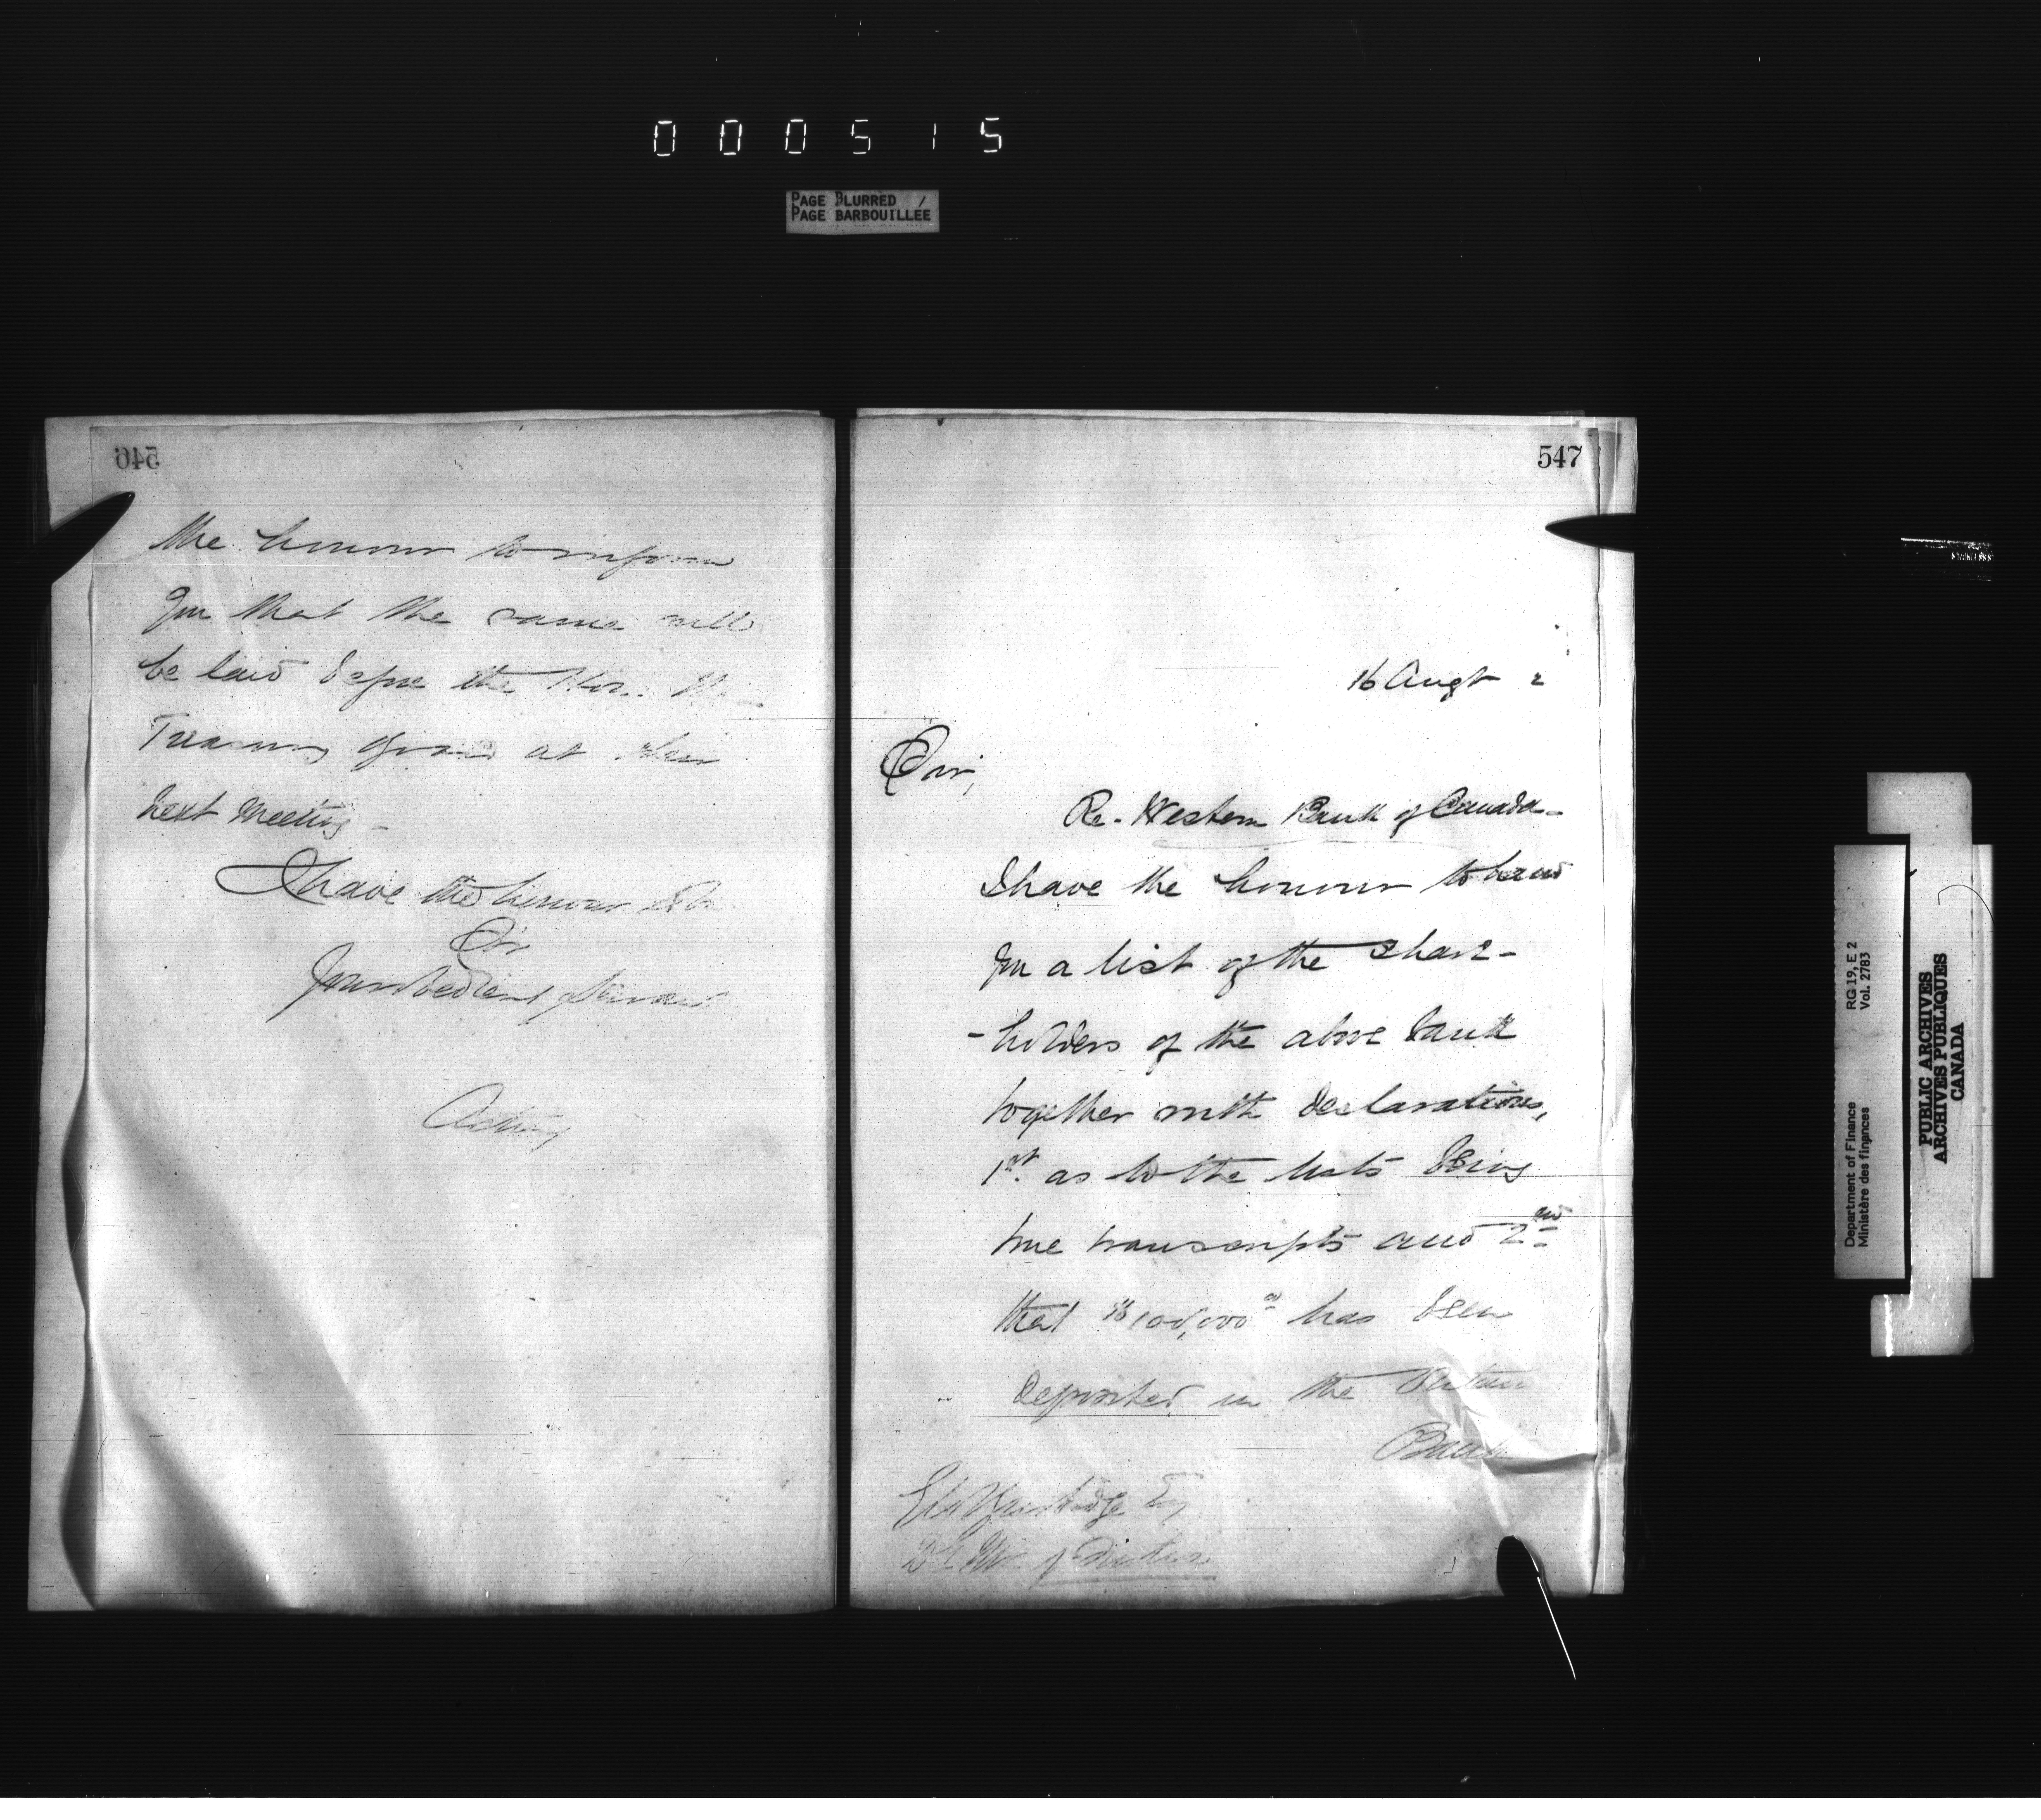 000515
PAGE BLURRED /
PAGE BARBOUILLÉE
546
the honour to inform
you that the same will
be laid before the Hon. the
Treasury Board at their
next meeting -
I have the honour to be
Sir
Your obedient servant
Acting
547
16 Augt 2
Sir,
Re. Western Bank of Canada -
I have the honour to hand
you a list of the share-
-holders of the above bank
together with declarations,
1st. as to the lists being
true transcripts and 2nd
that $100,000 has been
deposited in the
Bank
Esq
of Finance
Department of Finance RG 19, E 2
Ministère des finances Vol. 2783
PUBLIC ARCHIVES
ARCHIVES PUBLIQUES
CANADA